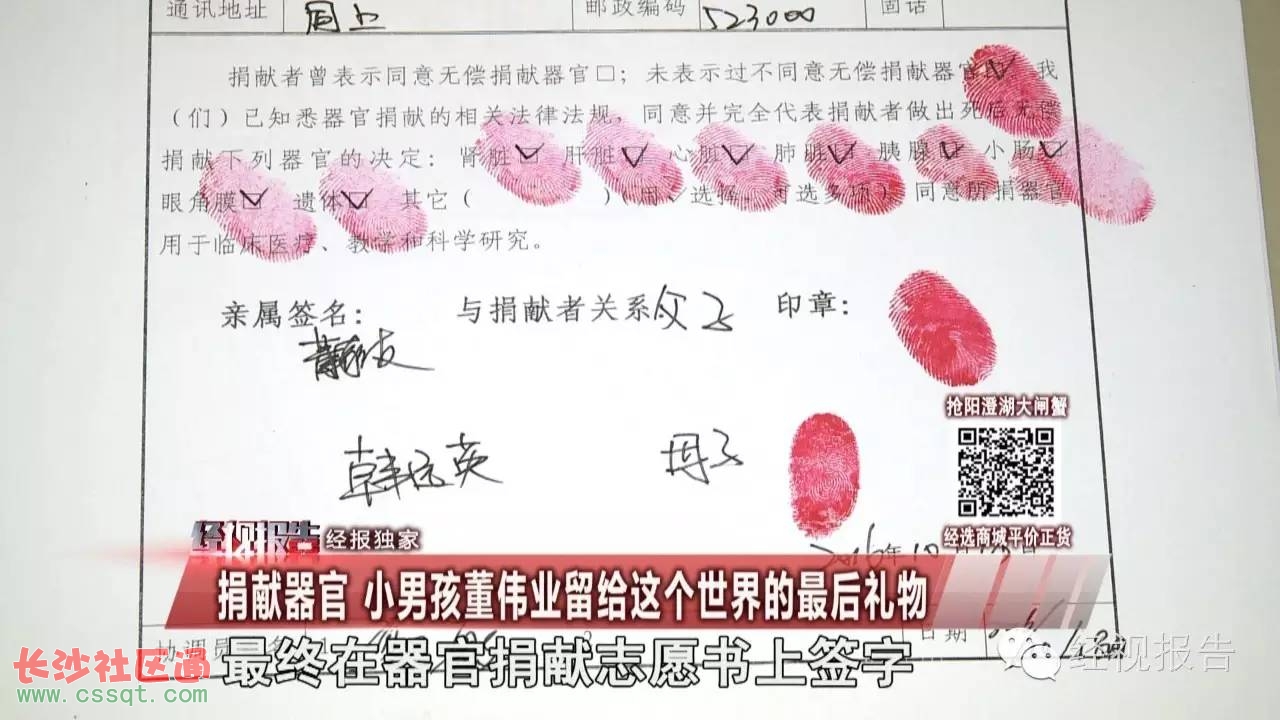 通讯地址 同上 邮政编码 523000 固话
捐献者曾表示同意无偿捐献器官□；未表示过不同意无偿捐献器官☑。我
（们）已知悉器官捐献的相关法律法规，同意并完全代表捐献者做出死后无偿
捐献下列器官的决定：肾脏☑ 肝脏☑ 心脏☑ 肺脏☑ 胰腺☑ 小肠☑
眼角膜☑ 遗体☑ 其它（ ）（用√选择，可选多项）同意所捐器官
用于临床医疗、教学和科学研究。
亲属签名： 与捐献者关系 父子 印章：
抢阳澄湖大闸蟹
韩远英 母子
经视报告 经报独家
经选商城平价正货
2016年10月
捐献器官 小男孩董伟业留给这个世界的最后礼物
协调员 日期
最终在器官捐献志愿书上签字
经视报告
长沙社区通
www.cssqt.com